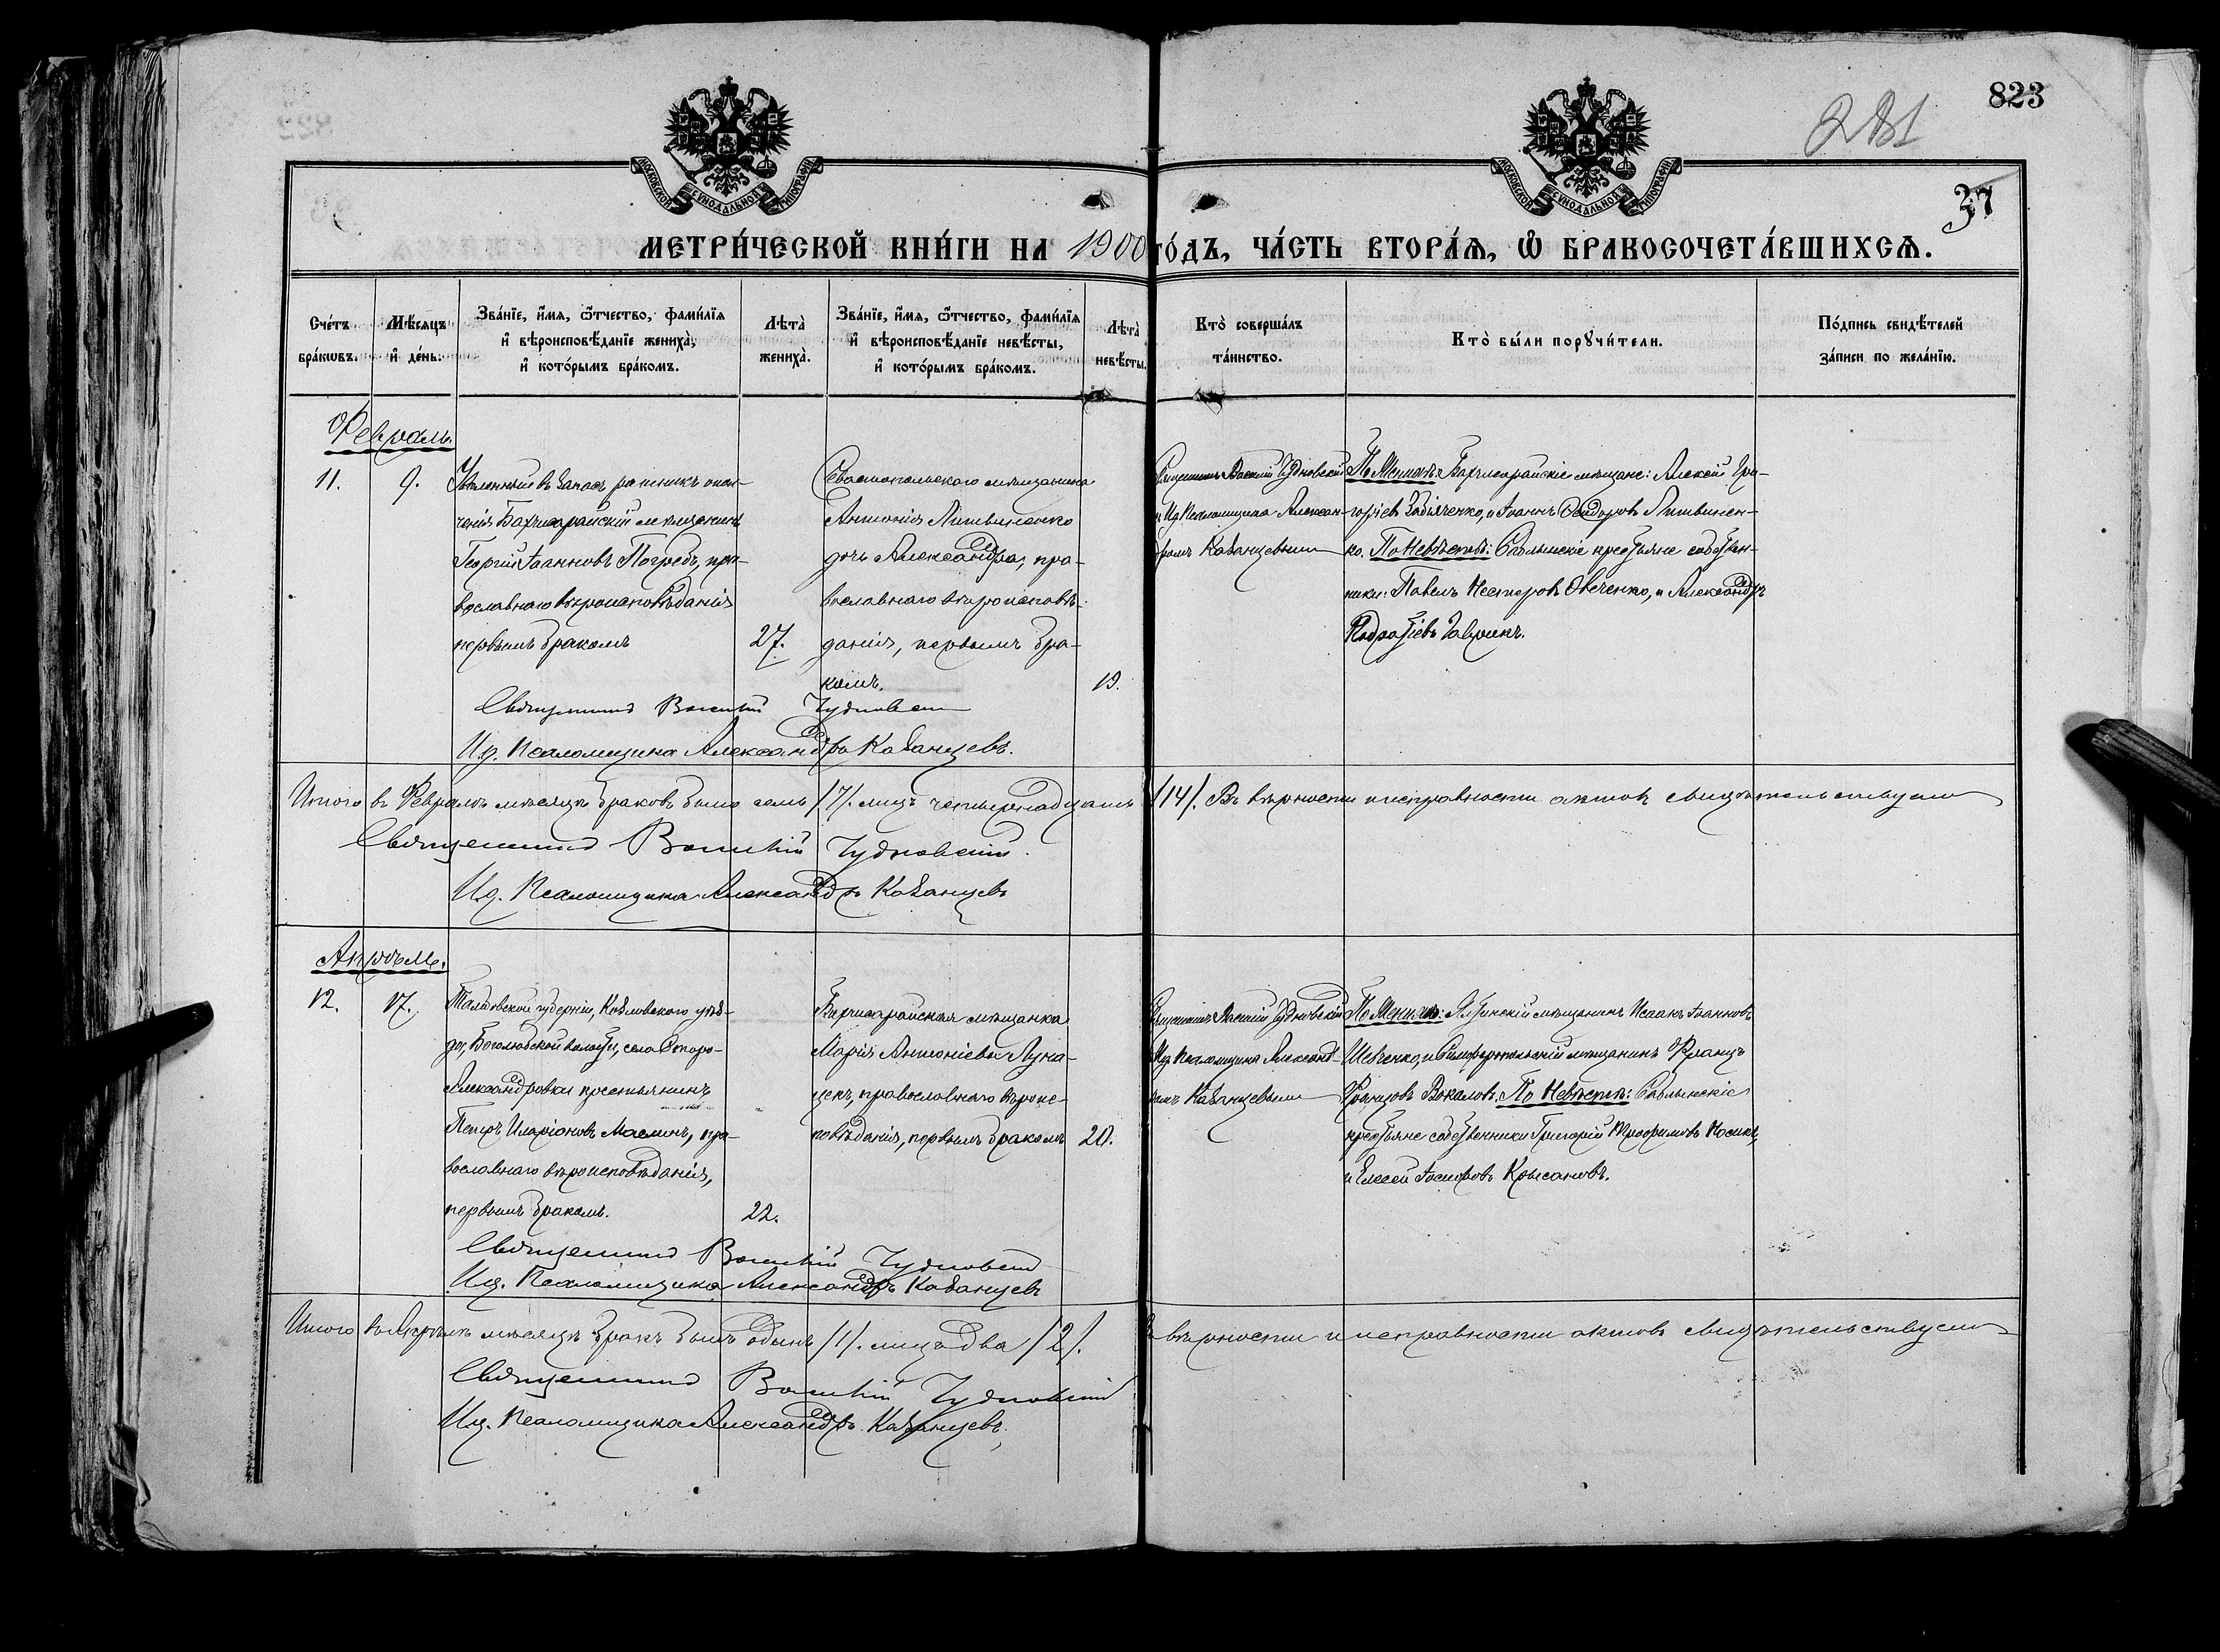 823
281
37
МОСКОВСКОЙ СѴНОДАЛЬНОЙ ТИПОГРАФІИ
МОСКОВСКОЙ СѴНОДАЛЬНОЙ ТИПОГРАФІИ
МЕТРИ́ЧЕСКОЙ КНИ́ГИ НА 1900 ГО́ДЪ, ЧА́СТЬ ВТОРА́Ѧ, Ѽ БРАКОСОЧЕТА́ВШИХСѦ.
Сче́тъ бра́кѡвъ.
Мѣ́сяцъ и҆ де́нь.
Зва́нїе, и҆́мѧ, ѻ҆́тчество, фами́лїѧ и҆ вѣроисповѣ́данїе жениха̀, и҆ кото́рымъ бра́комъ.
Лѣта̀ жениха̀.
Зва́нїе, и҆́мѧ, ѻ҆́тчество, фами́лїѧ и҆ вѣроисповѣ́данїе невѣ́сты, и҆ кото́рымъ бра́комъ.
Лѣта̀ невѣ́сты.
Кто̀ соверша́лъ та́инство.
Кто̀ бы́ли порꙋчи́тели.
По́дпись свидѣ́телей за́писи по жела́нїю.
Февраль.
11.
9.
Уволенный въ запасъ ратникъ опол-
ченія Бахчисарайскій мѣщанинъ
Георгій Іоанновъ Погребъ, пра-
вославнаго вѣроисповѣданія
первымъ бракомъ
27.
Севастопольскаго мѣщанина
Антонія Литвиненко
дочь Александра, пра-
вославнаго вѣроисповѣ-
данія, первымъ бра-
комъ.
19.
Священникъ Василій Чудновскій
и Ид. Псаломщика Алексан-
дромъ Казанцевымъ
По Женихѣ: Бахчисарайскіе мѣщане: Алексѣй Гри-
горіевъ Забіяченко, и Іоаннъ Ѳеодоровъ Литвинен-
ко. По Невѣстѣ: Саблынскіе крестьяне собствен-
ники: Павелъ Нестеровъ Овченко, и Александръ
Гаврикъ.
Священникъ Василій Чудновскій
И.д. Псаломщика Александръ Казанцевъ.
Итого въ Февралѣ мѣсяцѣ браковъ было семь /7/. лицъ четырнадцать /14/. Въ вѣрности и исправности актовъ свидѣтельствуемъ
Священникъ Василій Чудновскій.
И.д. Псаломщика Александръ Казанцевъ
Апрѣль.
12.
17.
Тамбовской губерніи, Козловскаго уѣз-
да, Боголюбской волости, села Старо-
Александровки крестьянинъ
Петръ Иларіоновъ Маслинъ, пра-
вославнаго вѣроисповѣданія,
первымъ бракомъ.
22.
Бахчисарайская мѣщанка
Марія Антоніева Луна-
цекъ, православнаго вѣроис-
повѣданія, первымъ бракомъ
20.
Священникъ Василій Чудновскій
Ид. Псаломщика Александ-
ромъ Казанцевымъ
По Женихѣ: Ялтинскій мѣщанинъ Исаакъ Іоанновъ
Шевченко, и Симферопольскій мѣщанинъ Францъ
Францовъ Вокаловъ. По Невѣстѣ: Саблынскіе
крестьяне собственники Григорій Трофимовъ Носикъ,
и Елисей Іосифовъ Крысановъ.
Священникъ Василій Чудновскій
И.д. Псаломщика Александръ Казанцевъ
Итого въ Апрѣлѣ мѣсяцѣ бракъ былъ одинъ /1/. лица два /2/. Въ вѣрности и исправности актовъ свидѣтельствуемъ
Священникъ Василій Чудновскій
И.д. Псаломщика Александръ Казанцевъ.